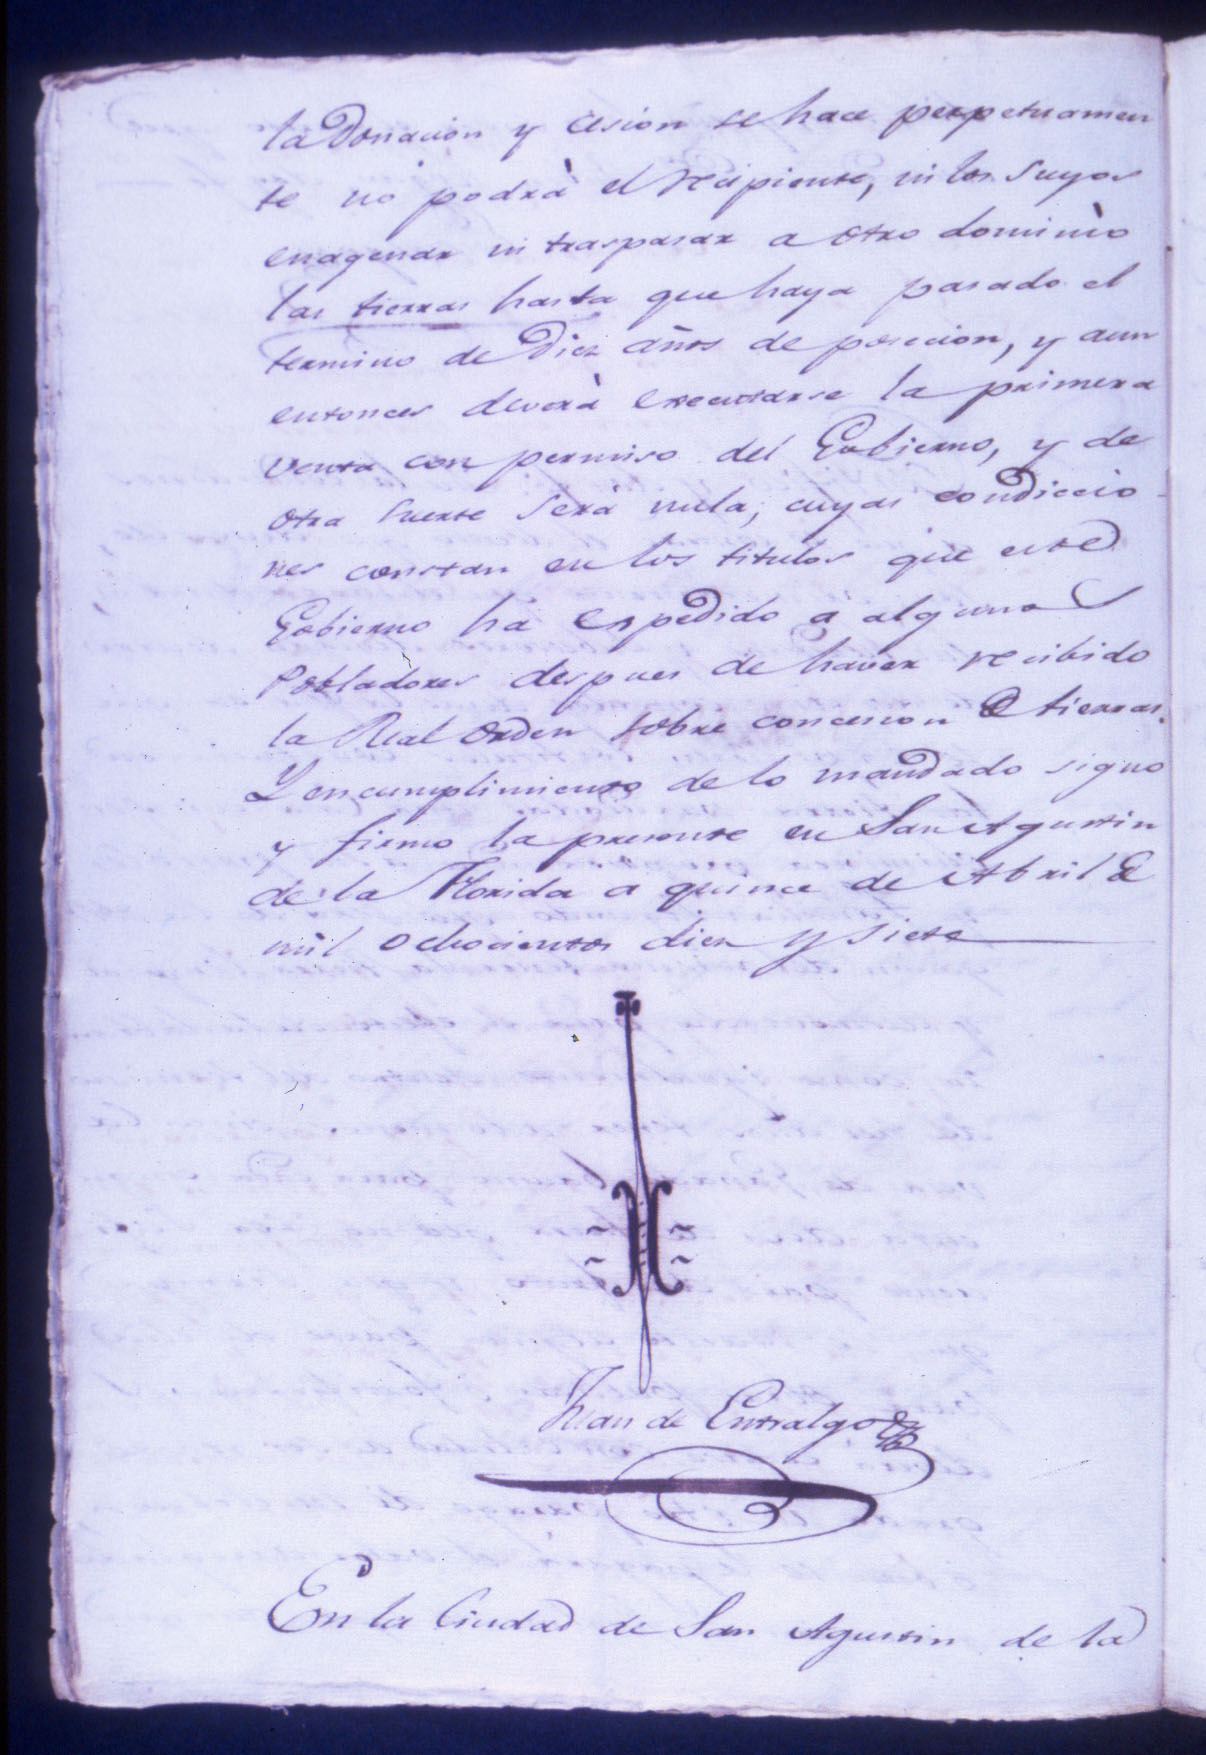 la Donacion y cesion se hace perpetuamen
te no podrà el recipiente, ni los suyos
enagenar ni traspasar a otro dominio
las tierras hasta que haya pasado el
termino de Diez años de posecion, y aun
entonces deverà executarse la primera
venta con permiso del Gobierno, y de
otra suerte será nula, cuyas condiccio
nes constan en los titulos que este
Gobierno ha expedido a algunos
Pobladores despues de haver recibido
la Real orden sobre concesion de tierras.
Y en cumplimiento de lo mandado signo
y firmo la presente en San Agustin
de la Florida a quince de Abril de
mil ochocientos diez y siete
Juan de Entralgo
En la Ciudad de San Agustin de la